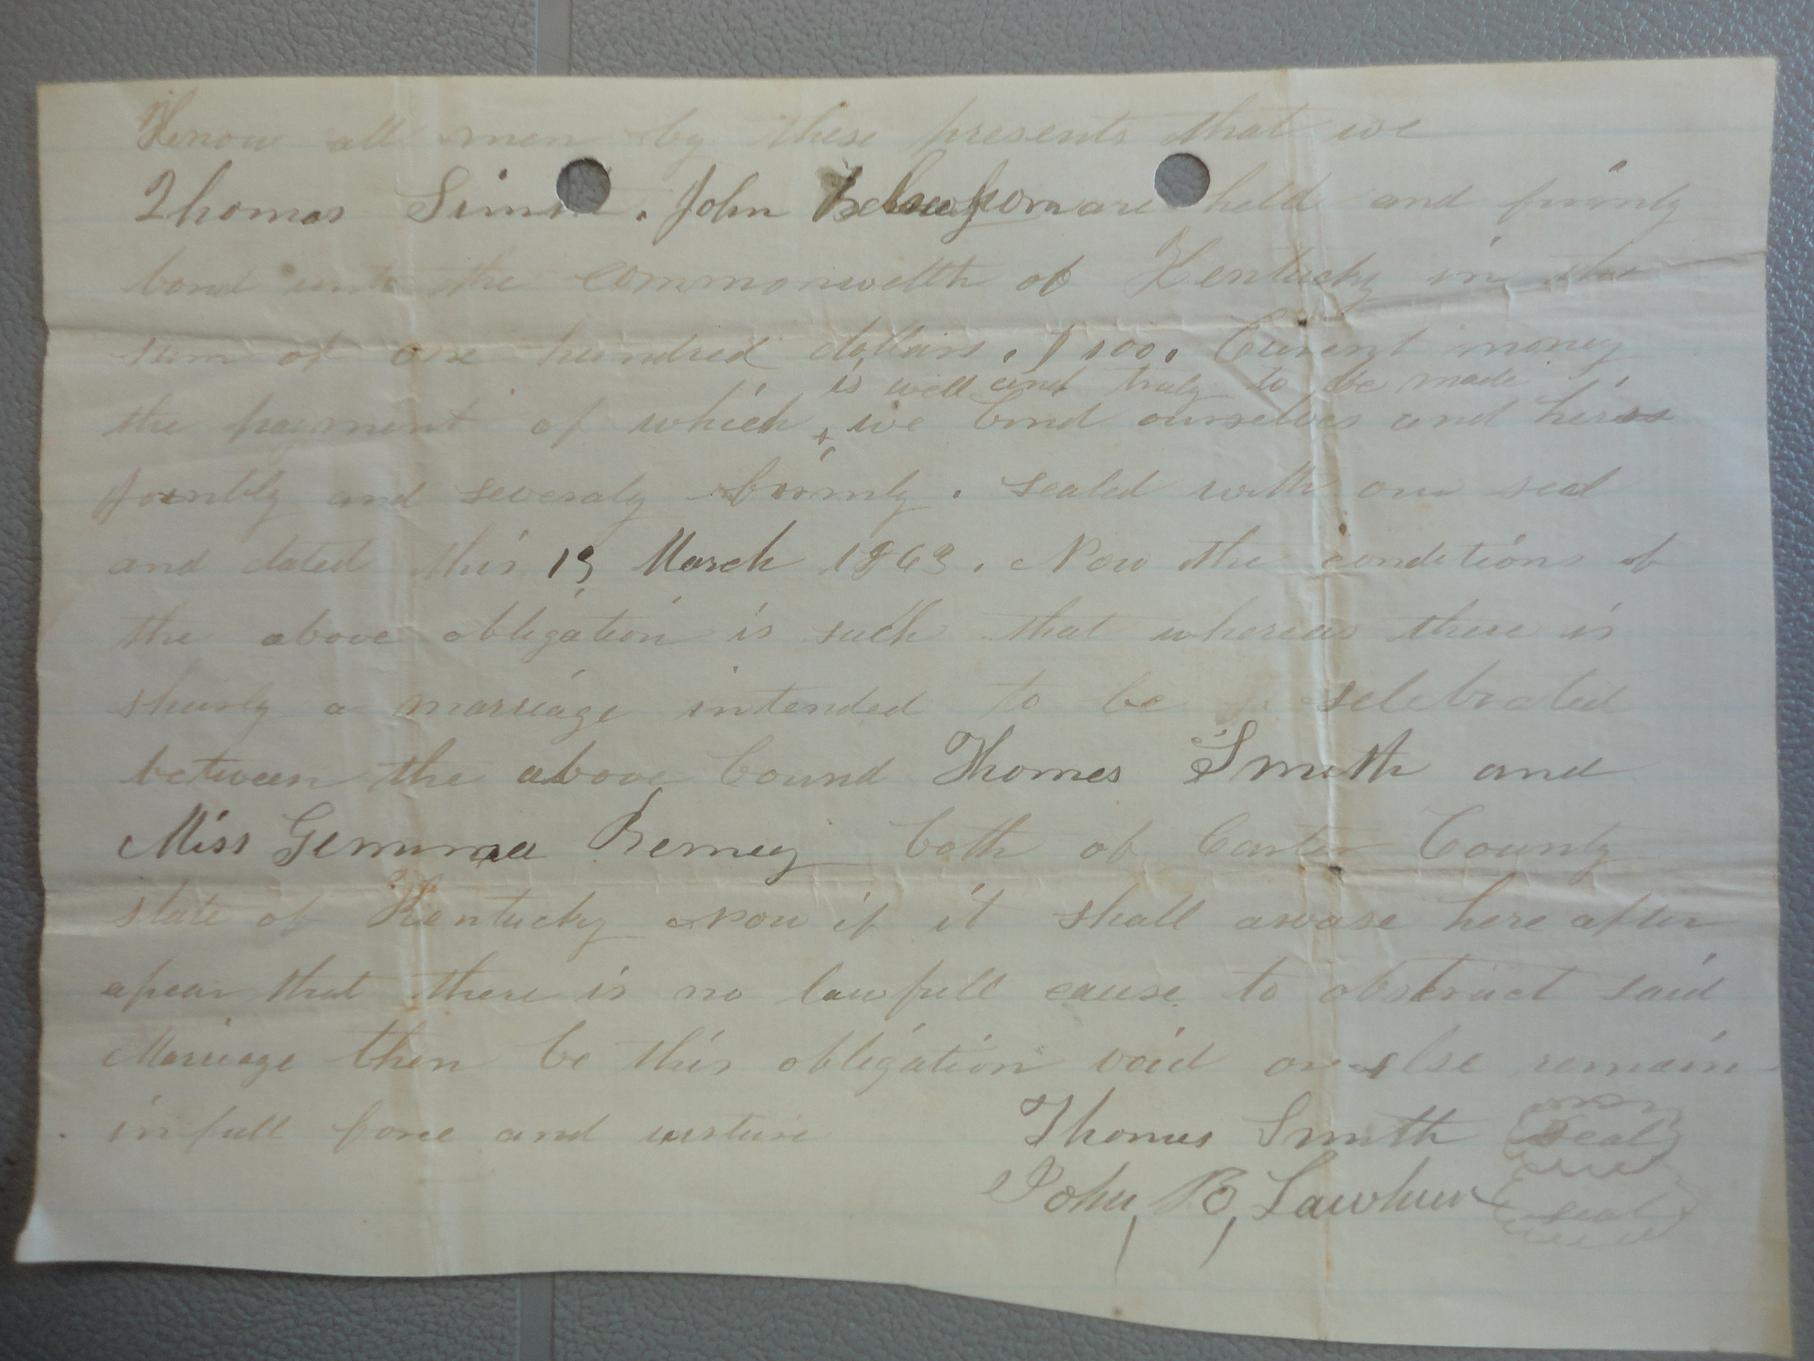 Know all men by these presents that we
Thomas Simit. John are held and firmly
bond unto the commonwelth of Kentucky in the
sum of one hundred dollars. $100. Curent money
is well and truly to be made
the payment of which we bind ourselves and heirs
Jointly and severaly firmly. sealed with our seal
and dated this 13 March 1863. Now the conditions of
the above obligation is such that whereas there is
shurly a marriage intended to be selebrated
between the above bound Thomes Smith and
Miss Gemima both of Carter County
state of Kentucky Now if it shall here after
apear that there is no lawfull cause to obstruct said
Marriage then be this obligation void or else remain
in full force and
Thomas Smith seal
John B, Lawhun seal